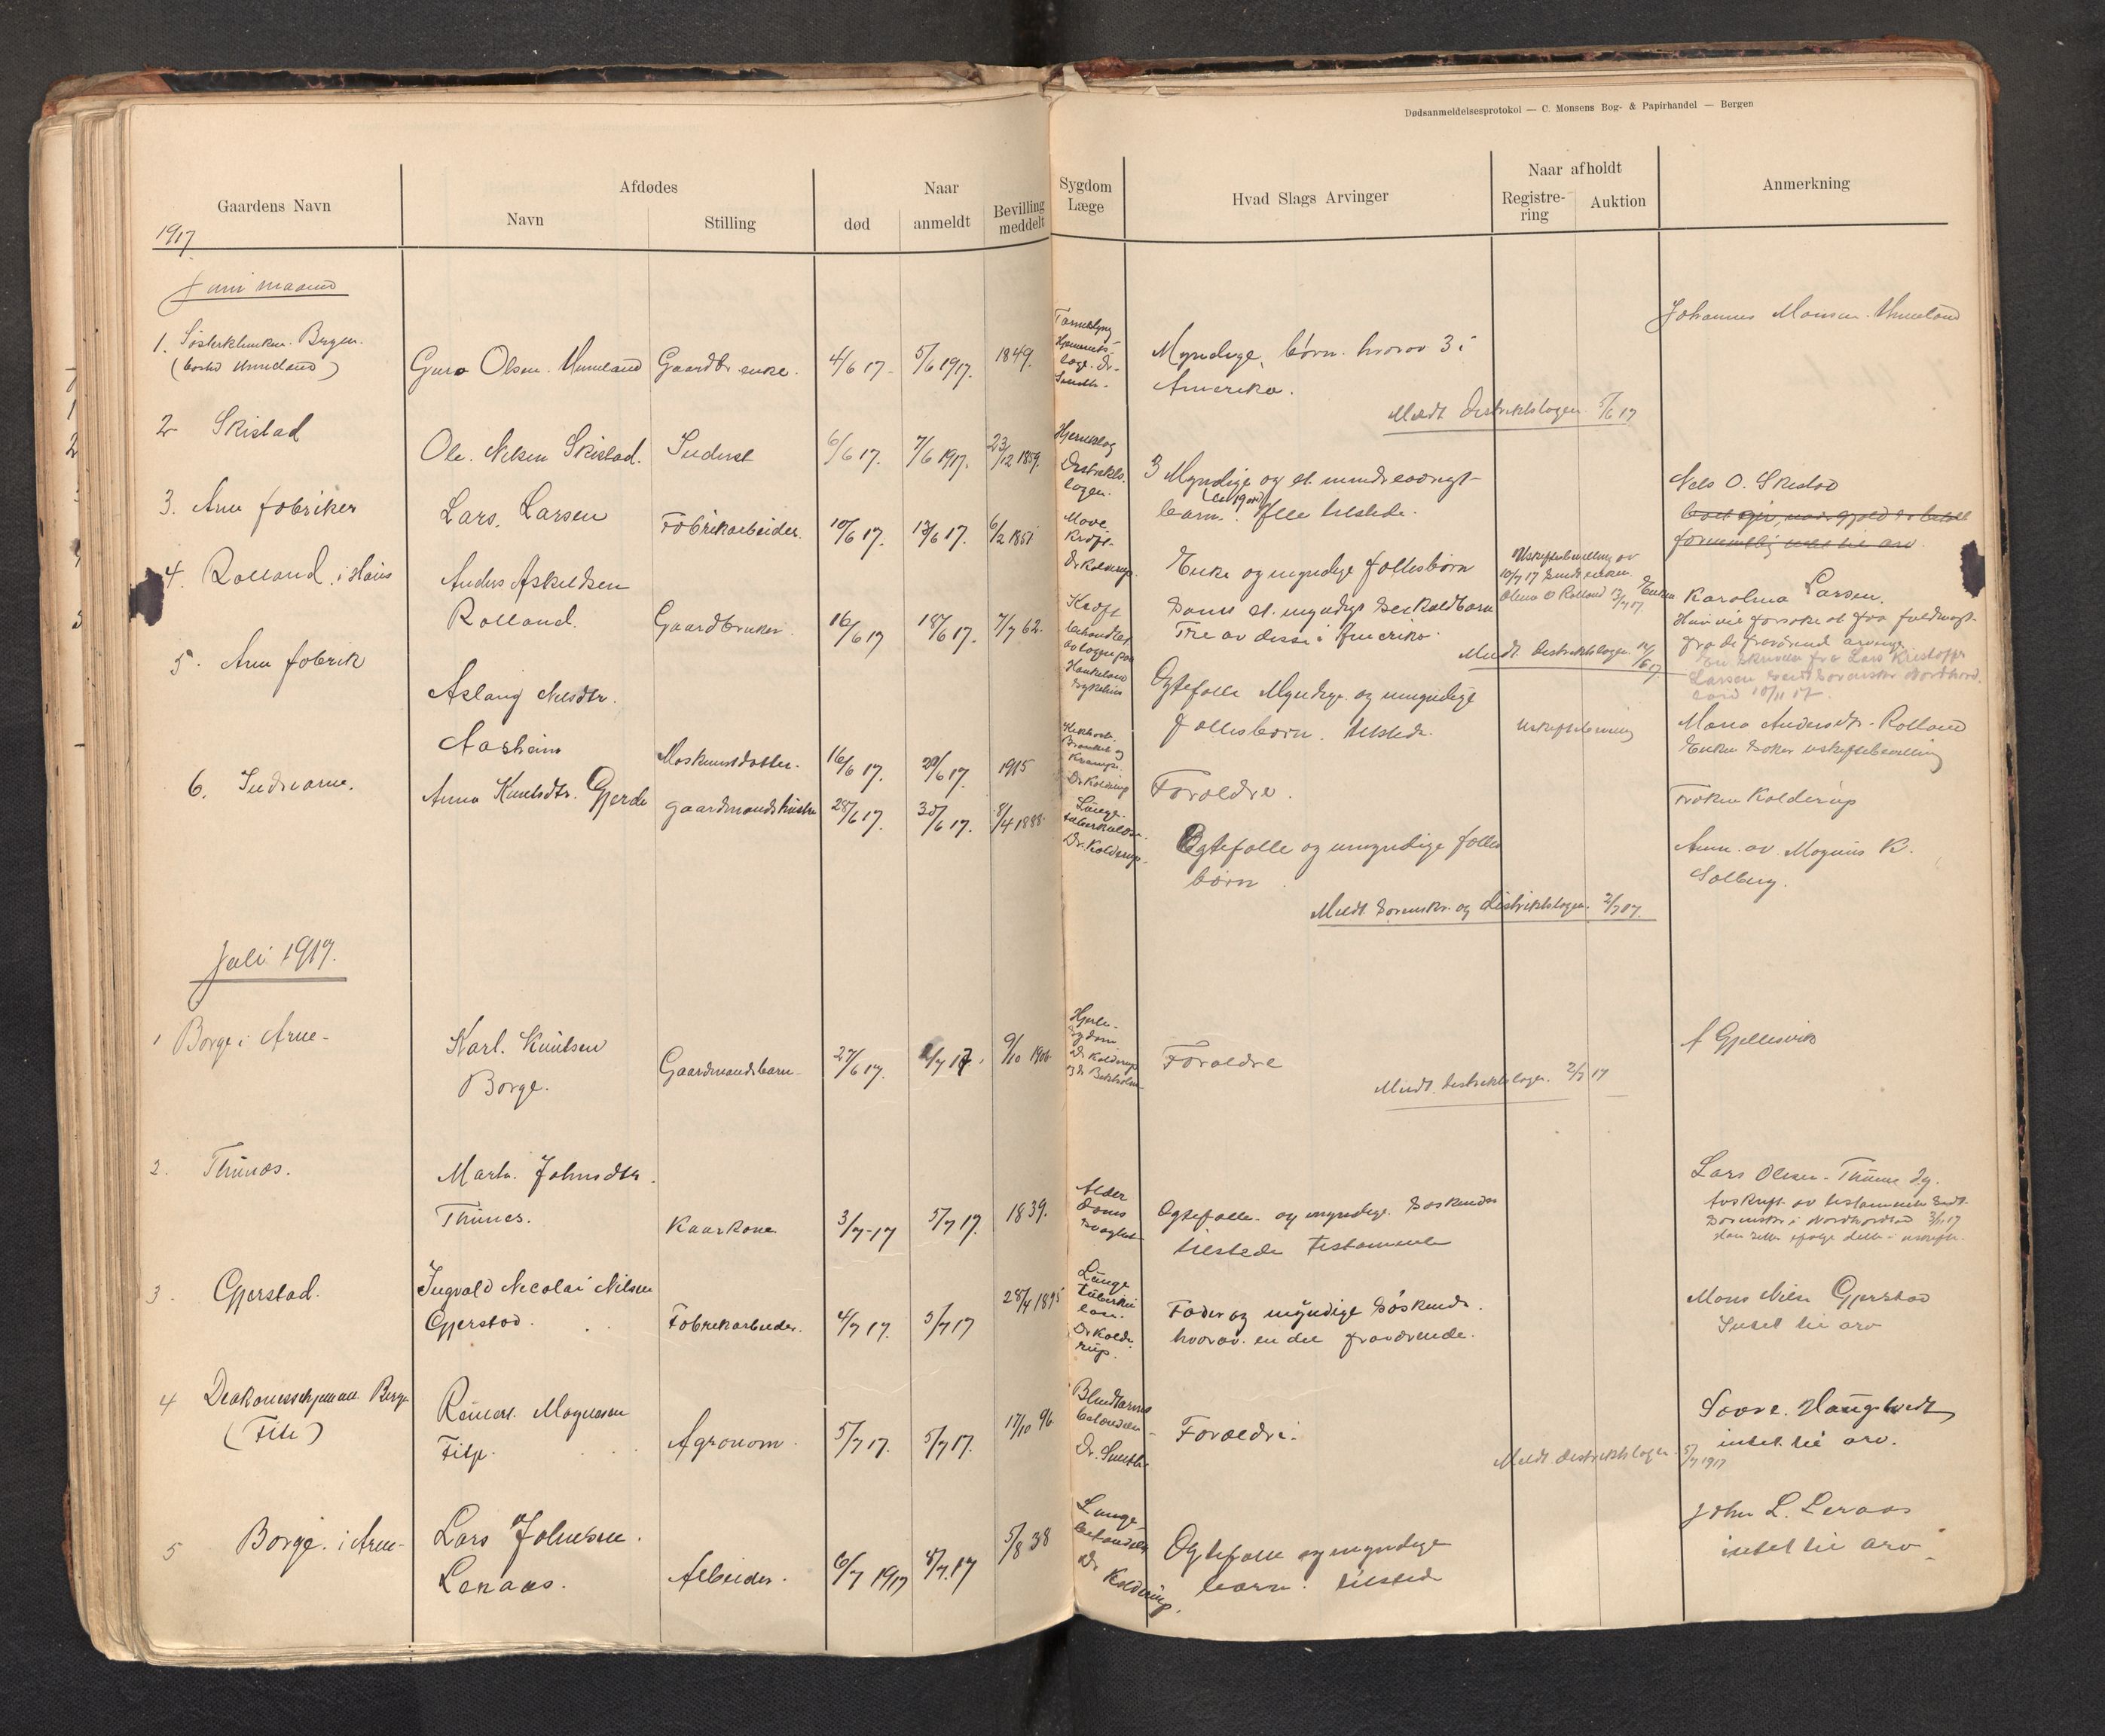 Dødsanmeldelsesprotokol — C. Monsens Bog- & Papirhandel — Bergen
Gaardens Navn
Afdødes
Navn
Stilling
Naar
død
anmeldt
Bevilling meddelt
Sygdom
Læge
Hvad Slags Arvinger
Naar afholdt
Registre-
ring
Auktion
Anmerkning
1917.
Juni maaned
1. Søsterkliniken. Bergen.
(bosted Unneland)
Guro Olsen. Unneland
Gaardbr enke.
4/6 17.
5/6 1917.
1849.
Myndige børn. hvorav 3 i
Amerika.
Johannes Monsen. Unneland
Meldt Distriktslægen 5/6 17
2 Skistad
Ole. Nelsen Skistad.
Inderst
6/6 17.
7/6 1917.
23/12 1859.
Hjerneslag
Distrikts-
lægen.
3 Myndige og et mindreaarigt
barn. Alle tilstede.
Nels O. Skistad
3. Arne fabriker
Lars. Larsen
Fabrikarbeider.
10/6 17.
13/6 17.
6/2 1851
Mave
kræft.
Dr Kolderup.
Enke og myndige fællesbørn
samt et myndigt serkuldbarn
Tre av dessa i Amerika.
Enken Karolina Larsen.
Meldt Distriktslægen 14/6 17
4. Rolland. i Haus
Anders Askildsen
Rolland.
Gaardbruker.
16/6 17
18/6 17.
7/7 62.
Kræft
behandlet
av lægen paa
Haukeland
sykehus
Ogtefælle Myndige og umyndige
fællesbørn. tilstede.
Uskiftebevilling av
10/7 17 sendt enken
Olina O Rolland 13/7 17
Uskiftebevilling
Maria Andersdtr. Rolland
Enken søker uskiftebevilling
5. Arne fabrik
Aslaug Nelsdtr.
Aasheim
Maskinistdatter.
16/6 17.
20/6 17.
1915
Kikhoste
Bronkit og
Krampe.
Dr Kolderup
Forældre.
Frøken Kolderup
6. Indre arne.
Anna Knutsdtr. Gjerde
gaardmandshustru
28/6 17.
30/6 17.
8/4 1888.
Lunge-
tuberkulose.
Dr. Kolderup.
Egtefælle og umyndige fælles
børn
Anm. av Magnus K.
Solberg.
Meldt. Sorenskr. og Distriktslægen. 2/7 17.
Juli 1917.
1 Borge i Arne-
Karl. Knutsen
Borge.
Gaardmandsbarn
27/6 17.
2/7 17.
9/10 1906.
Hjerte-
sygdom
Dr Kolderup
Forældre
Meldt. Distriktslægen. 2/7 17
2. Thunæs.
Marta. Johnsdtr.
Thunes.
Kaarkone
3/7-17
5/7 17.
1839.
Alder
doms
svaghet
Ogtefælle. og myndige søskende
tilstede testamente
Lars Olsen. Thunes
Avskrift av testamente sendt
Sorenskr. i Nordhordland
3. Gjerstad.
Ingvald Nicolai Nilsen
Gjerstad.
Fabrikarbeider.
4/7 17.
5/7 17
28/4 1895
Lunge
tuberku
lose.
Dr Kolde
rup.
Fader og myndige søskende.
hvorav. en del fraværende.
Mons Nilsen Gjerstad
Intet til arv
4 Diakonissehjemmet Bergen
(Fitje)
Reinert. Magnesen
Fitje.
Agronom.
5/7 17.
5/7 17.
17/10 96
Blindtarms
betendelse
Dr. Smith
Forældre.
Sovre. Haugtvedt
intet til arv.
Meldt. Distriktslægen. 5/7 1917
5 Borge. i Arne-
Lars Johnsen.
Leraas.
Arbeider.
6/7 1917
8/7.17
5/8 38
Lunge-
betendelse
Dr Kolderup.
Ogtefælle og myndige
børn. tilstede
John L. Leraas
intet til arv